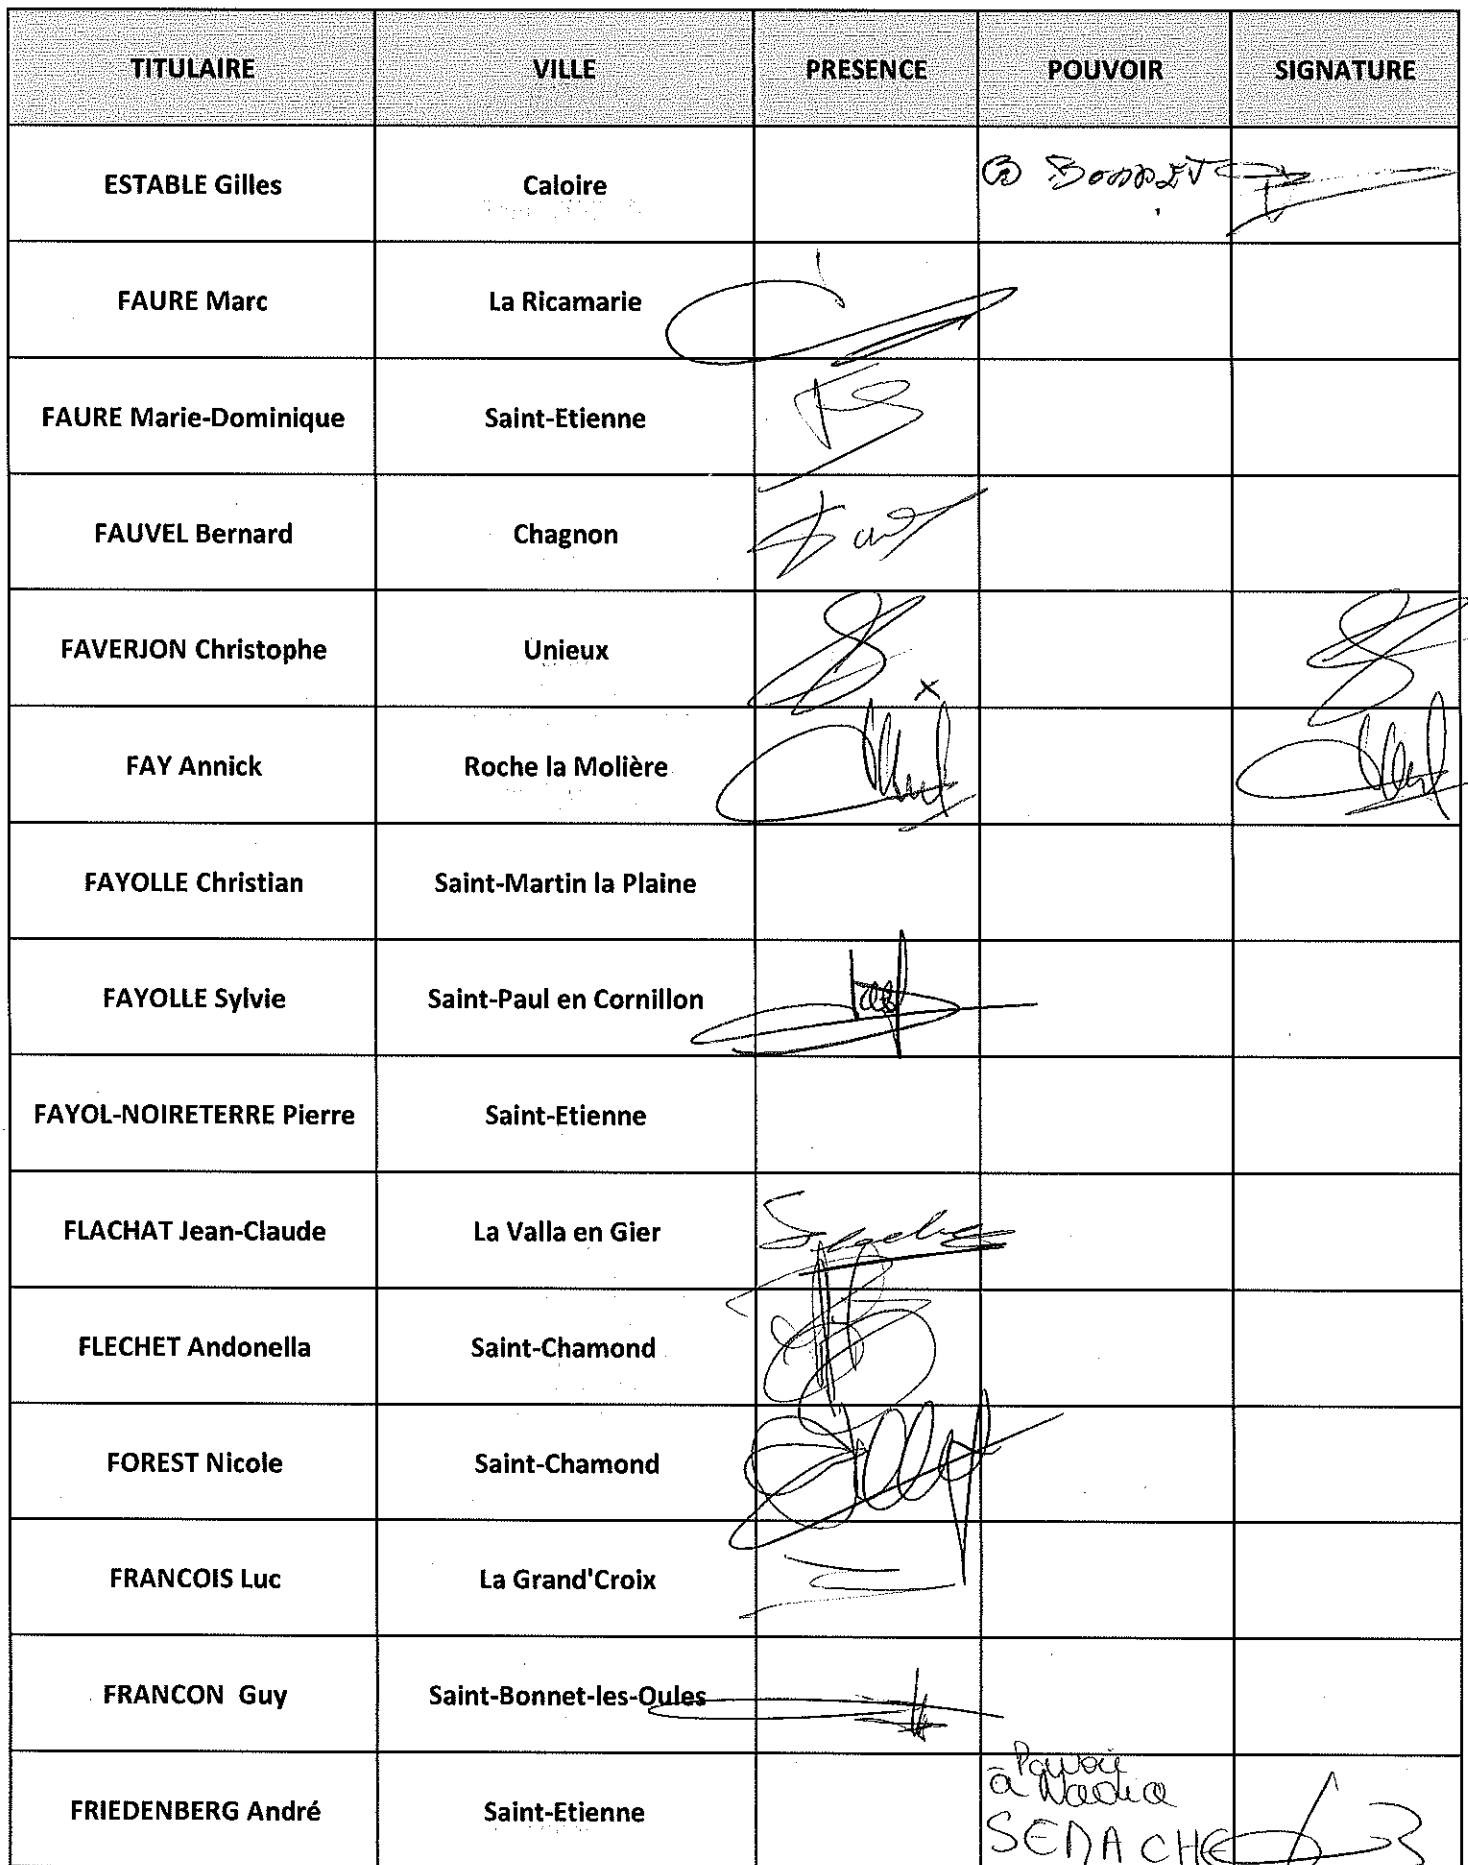 TITULAIRE VILLE PRESENCE POUVOIR SIGNATURE
ESTABLE Gilles Caloire
FAURE Marc La Ricamarie
FAURE Marie-Dominique Saint-Etienne
FAUVEL Bernard Chagnon
FAVERJON Christophe Unieux
x
FAY Annick Roche la Molière
FAYOLLE Christian Saint-Martin la Plaine
FAYOLLE Sylvie Saint-Paul en Cornillon
FAYOL-NOIRETERRE Pierre Saint-Etienne
FLACHAT Jean-Claude La Valla en Gier
FLECHET Andonella Saint-Chamond
FOREST Nicole Saint-Chamond
FRANCOIS Luc La Grand'Croix
FRANCON Guy Saint-Bonnet-les-Oules
Pouvoir
à Nadia
FRIEDENBERG André Saint-Etienne
SEMACHE